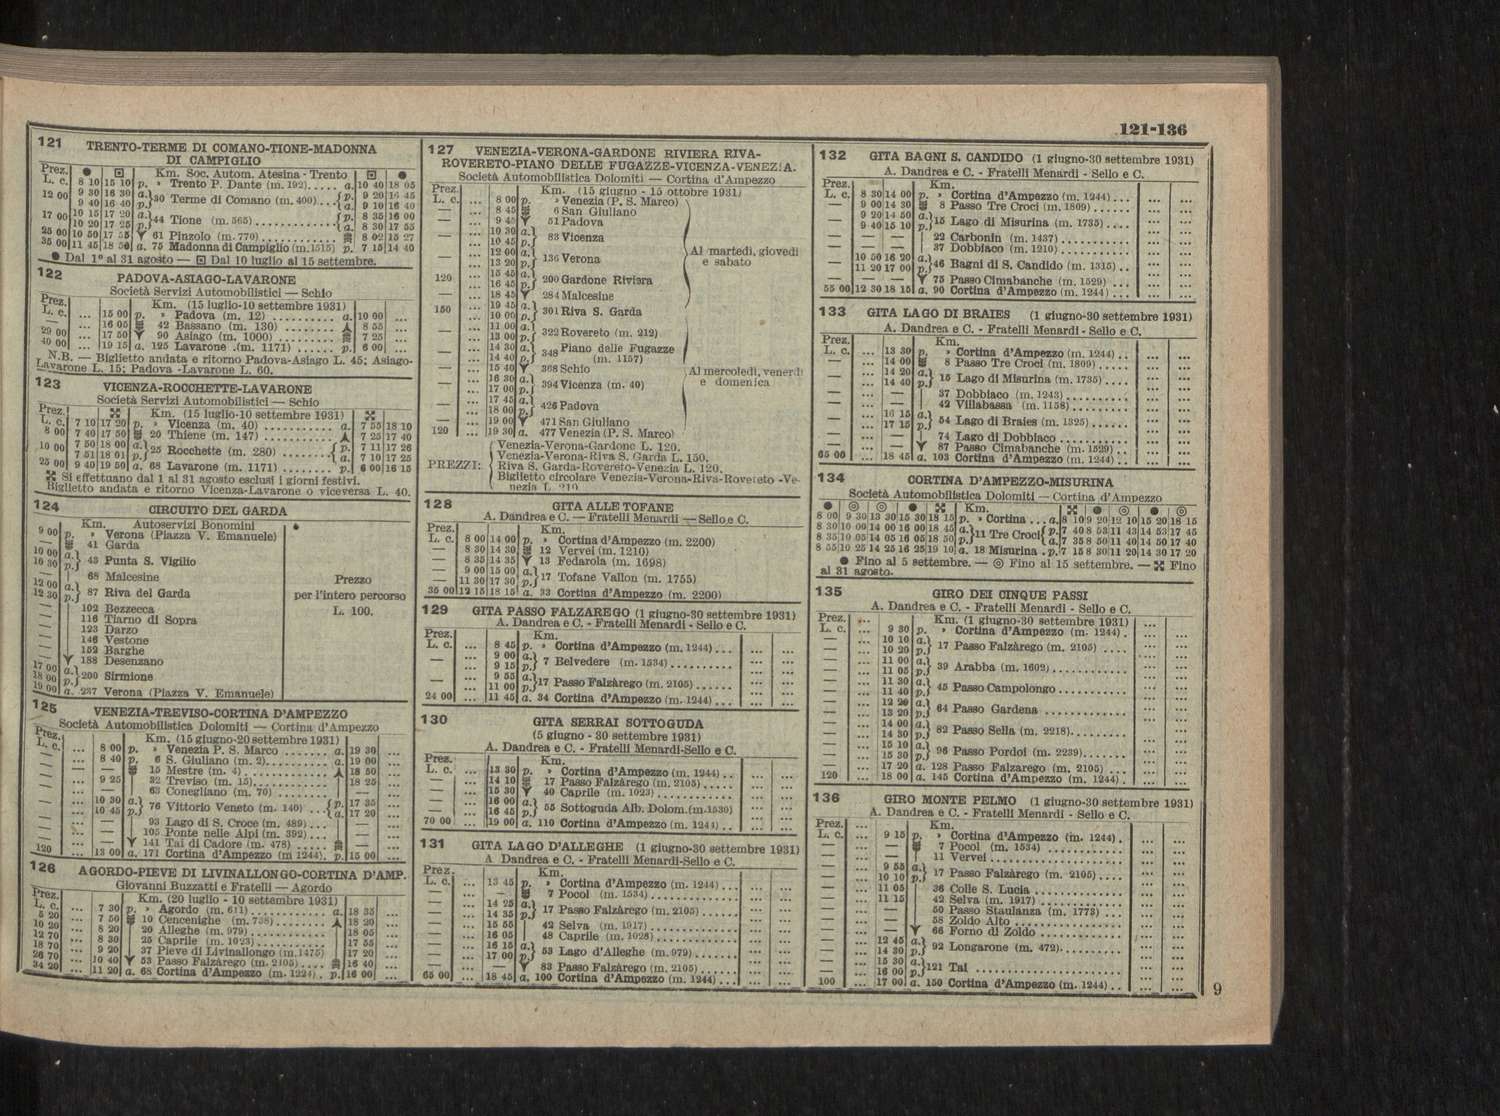 121-136
121 TRENTO-TERME DI COMANO-TIONE-MADONNA
DI CAMPIGLIO
Prez. L. c. ● ⊡ Km. Soc. Autom. Atesina - Trento ⊡ ●
8 10 15 10 p. » Trento P. Dante (m. 192)..... a. 10 40 18 05
12 00 9 30 16 30 a. 30 Terme di Comano (m. 400)... p. 9 20 16 45
9 40 16 40 p. a. 9 10 16 40
17 00 10 15 17 20 a. 44 Tione (m. 565) p. 8 35 16 00
10 20 17 25 p. a. 8 30 17 55
25 00 10 50 17 55 61 Pinzolo (m. 770) 8 02 15 27
35 00 11 45 18 50 a. 75 Madonna di Campiglio (m. 1515) p. 7 15 14 40
● Dal 1º al 31 agosto — ⊡ Dal 10 luglio al 15 settembre.
122 PADOVA-ASIAGO-LAVARONE
Società Servizi Automobilistici — Schio
Prez. L. c. Km. (15 luglio-10 settembre 1931)
... 15 00 p. » Padova (m. 12) .......... a. 10 00 ...
... 16 05 42 Bassano (m. 130) ........ 8 55 ...
29 00 ... 17 50 90 Asiago (m. 1000) ........ 7 25 ...
40 00 ... 19 15 a. 125 Lavarone .(m. 1171) ...... p. 6 00 ...
N.B. — Biglietto andata e ritorno Padova-Asiago L. 45; Asiago-
Lavarone L. 15; Padova -Lavarone L. 60.
123 VICENZA-ROCCHETTE-LAVARONE
Società Servizi Automobilistici — Schio
Prez. L. c. Km. (15 luglio-10 settembre 1931)
7 10 17 20 p. » Vicenza (m. 40) .......... a. 7 55 18 10
8 00 7 40 17 50 20 Thiene (m. 147) .......... 7 25 17 40
10 00 7 50 18 00 a. 25 Rocchette (m. 280) ........ p. 7 11 17 26
7 51 18 01 p. a. 7 10 17 25
25 00 9 40 19 50 a. 68 Lavarone (m. 1171) ........ p. 6 00 16 15
Si effettuano dal 1 al 31 agosto esclusi i giorni festivi.
Biglietto andata e ritorno Vicenza-Lavarone o viceversa L. 40.
124 CIRCUITO DEL GARDA
Km. Autoservizi Bonomini ●
9 00 p. » Verona (Piazza V. Emanuele)
— 41 Garda
10 00 a. 43 Punta S. Vigilio
10 30 p.
— 68 Malcesine
12 00 a. 87 Riva del Garda
12 30 p.
— 102 Bezzecca
— 116 Tiarno di Sopra
— 123 Darzo
— 146 Vestone
— 152 Barghe
— 188 Desenzano
17 00 a. 200 Sirmione
18 00 p.
19 00 a. 237 Verona (Piazza V. Emanuele)
Prezzo
per l'intero percorso
L. 100.
125 VENEZIA-TREVISO-CORTINA D'AMPEZZO
Società Automobilistica Dolomiti — Cortina d'Ampezzo
Prez. L. c. Km. (15 giugno-20 settembre 1931)
... 8 00 p. » Venezia P. S. Marco ....... a. 19 30 ...
— ... 8 40 p. 6 S. Giuliano (m. 2)......... a. 19 00 ...
— ... — 15 Mestre (m. 4) 18 50 ...
— ... 9 25 32 Treviso (m. 15) 18 25 ...
— ... — 63 Conegliano (m. 70) — ...
— ... 10 30 a. 76 Vittorio Veneto (m. 140) .. p. 17 35 ...
... 10 45 p. a. 17 20 ...
— ... — 93 Lago di S. Croce (m. 489)... — ...
— ... — 105 Ponte nelle Alpi (m. 392)... — ...
— ... — 141 Tai di Cadore (m. 478) ..... — ...
120 ... 13 00 a. 171 Cortina d'Ampezzo (m 1244). p. 15 00 ...
126 AGORDO-PIEVE DI LIVINALLONGO-CORTINA D'AMP.
Giovanni Buzzatti e Fratelli — Agordo
Prez. L. c. Km. (20 luglio - 10 settembre 1931)
... 7 30 p. » Agordo (m. 611) a. 18 35 ...
5 20 ... 7 50 10 Cencenighe (m. 738) 18 20 ...
10 20 ... 8 20 20 Alleghe (m. 979) 18 05 ...
12 70 ... 8 30 25 Caprile (m. 1023) 17 55 ...
18 70 ... 9 20 37 Pieve di Livinallongo (m. 1475) 17 20 ...
26 70 ... 10 40 53 Passo Falzàrego (m. 2105).... 16 40 ...
34 20 ... 11 20 a. 68 Cortina d'Ampezzo (m. 1224).. p. 16 00 ...
127 VENEZIA-VERONA-GARDONE RIVIERA RIVA-
ROVERETO-PIANO DELLE FUGAZZE-VICENZA-VENEZIA.
Società Automobilistica Dolomiti — Cortina d'Ampezzo
Prez. L. c. Km. (15 giugno - 15 ottobre 1931)
... 8 00 p. » Venezia (P. S. Marco)
— ... 8 45 6 San Giuliano
— ... 9 45 51 Padova
— ... 10 30 a. 83 Vicenza
10 45 p.
— ... 12 00 a. 136 Verona
... 13 20 p.
120 ... 15 45 a. 200 Gardone Riviera
... 16 45 p.
— ... 18 45 284 Malcesine
150 ... 19 45 a. 301 Riva S. Garda
... 10 00 p.
— ... 11 00 a. 322 Rovereto (m. 212)
... 13 00 p.
— ... 14 30 a. 348 Piano delle Fugazze
... 14 40 p. (m. 1157)
— ... 15 40 368 Schio
— ... 16 30 a. 394 Vicenza (m. 40)
... 17 00 p.
— ... 17 45 a. 426 Padova
... 18 00 p.
— ... 19 00 471 San Giuliano
120 ... 19 30 a. 477 Venezia (P. S. Marco)
Al martedì, giovedì
e sabato
Al mercoledì, venerdì
e domenica
PREZZI: Venezia-Verona-Gardone L. 120.
Venezia-Verona-Riva S. Garda L. 150.
Riva S. Garda-Rovereto-Venezia L. 120.
Biglietto circolare Venezia-Verona-Riva-Rovereto -Ve-
nezia L. 210.
128 GITA ALLE TOFANE
A. Dandrea e C. — Fratelli Menardi — Sello e C.
Prez. L. c. Km.
8 00 14 00 p. » Cortina d'Ampezzo (m. 2200)
— 8 30 14 30 12 Vervei (m. 1210)
— 8 35 14 35 13 Fedarola (m. 1698)
— 9 00 15 00 a. 17 Tofane Vallon (m. 1755)
11 30 17 30 p.
35 00 12 15 18 15 a. 33 Cortina d'Ampezzo (m. 2200)
129 GITA PASSO FALZAREGO (1 giugno-30 settembre 1931)
A. Dandrea e C. - Fratelli Menardi - Sello e C.
Prez. L. c. Km.
... 8 45 p. » Cortina d'Ampezzo (m. 1244)... ... ...
— ... 9 00 a. 7 Belvedere (m. 1534).......... ... ...
9 15 p.
— ... 9 55 a. 17 Passo Falzàrego (m. 2105)...... ... ...
... 11 00 p.
24 00 ... 11 45 a. 34 Cortina d'Ampezzo (m. 1244)... ... ...
130 GITA SERRAI SOTTOGUDA
(5 giugno - 30 settembre 1931)
A. Dandrea e C. - Fratelli Menardi-Sello e C.
Prez. L. c. Km.
... 13 30 p. » Cortina d'Ampezzo (m. 1244).. ... ...
— ... 14 10 17 Passo Falzàrego (m. 2105)..... ... ...
— ... 15 30 40 Caprile (m. 1023) ... ...
— ... 16 00 a. 55 Sottoguda Alb. Dolom.(m.1530) ... ...
... 16 45 p.
70 00 ... 19 00 a. 110 Cortina d'Ampezzo (m. 1244).. ... ...
131 GITA LAGO D'ALLEGHE (1 giugno-30 settembre 1931)
A Dandrea e C. - Fratelli Menardi-Sello e C.
Prez. L. c. Km.
... 13 45 p. » Cortina d'Ampezzo (m. 1244)... ... ...
— ... — 7 Pocol (m. 1534) ... ...
— ... 14 25 a. 17 Passo Falzàrego (m. 2105)..... ... ...
... 14 35 p.
— ... 15 55 42 Selva (m. 1917) ... ...
— ... 16 05 48 Caprile (m. 1028) ... ...
— ... 16 15 a. 53 Lago d'Alleghe (m. 979) ... ...
... 17 00 p.
— ... — 83 Passo Falzàrego (m. 2105)..... ... ...
65 00 ... 18 45 a. 100 Cortina d'Ampezzo (m. 1244)... ... ...
132 GITA BAGNI S. CANDIDO (1 giugno-30 settembre 1931)
A. Dandrea e C. - Fratelli Menardi - Sello e C.
Prez. L. c. Km.
8 30 14 00 p. » Cortina d'Ampezzo (m. 1244)... ... ...
— 9 00 14 30 8 Passo Tre Croci (m. 1809)...... ... ...
— 9 20 14 50 a. 15 Lago di Misurina (m. 1735).... ... ...
9 40 15 10 p.
— — — 22 Carbonin (m. 1437) ... ...
— — — 37 Dobbiaco (m. 1210) ... ...
— 10 50 16 20 a. 46 Bagni di S. Candido (m. 1315).. ... ...
11 20 17 00 p.
— — — 75 Passo Cimabanche (m. 1529) .. ... ...
55 00 12 30 18 15 a. 90 Cortina d'Ampezzo (m. 1244)... ... ...
133 GITA LAGO DI BRAIES (1 giugno-30 settembre 1931)
A. Dandrea e C. - Fratelli Menardi - Sello e C.
Prez. L. c. Km.
... 13 30 p. » Cortina d'Ampezzo (m. 1244).. ... ...
— ... 14 00 8 Passo Tre Croci (m. 1809) ... ... ...
— ... 14 20 a. 15 Lago di Misurina (m. 1735).... ... ...
... 14 40 p.
— ... — 37 Dobbiaco (m. 1243) ... ...
— ... — 42 Villabassa (m. 1158) ... ...
— ... 16 15 a. 54 Lago di Braies (m. 1325) ... ...
... 17 15 p.
— ... — 74 Lago di Dobbiaco ... ...
— ... — 87 Passo Cimabanche (m. 1529).. ... ...
65 00 ... 18 45 a. 103 Cortina d'Ampezzo (m. 1244).. ... ...
134 CORTINA D'AMPEZZO-MISURINA
Società Automobilistica Dolomiti — Cortina d'Ampezzo
● ◎ ◎ ● Km. ● ◎ ● ◎
8 00 9 30 13 30 15 30 18 15 p. » Cortina ... a. 8 10 9 20 12 10 15 20 18 15
8 30 10 00 14 00 16 00 18 45 a. 11 Tre Croci p. 7 40 8 53 11 43 14 53 17 45
8 35 10 05 14 05 16 05 18 50 p. a. 7 35 8 50 11 40 14 50 17 40
8 55 10 25 14 25 16 25 19 10 a. 18 Misurina . p. 7 15 8 30 11 20 14 30 17 20
● Fino al 5 settembre. — ◎ Fino al 15 settembre. — Fino
al 31 agosto.
135 GIRO DEI CINQUE PASSI
A. Dandrea e C. - Fratelli Menardi - Sello e C.
Prez. L. c. Km. (1 giugno-30 settembre 1931)
... 9 30 p. » Cortina d'Ampezzo (m. 1244). ... ...
— ... 10 10 a. 17 Passo Falzàrego (m. 2105) .... ... ...
... 10 20 p.
— ... 11 00 a. 39 Arabba (m. 1602) ... ...
... 11 05 p.
— ... 11 30 a. 45 Passo Campolongo ... ...
... 11 40 p.
— ... 12 20 a. 64 Passo Gardena ... ...
... 13 20 p.
— ... 14 00 a. 82 Passo Sella (m. 2218) ... ...
... 14 30 p.
— ... 15 10 a. 96 Passo Pordoi (m. 2239) ... ...
... 15 30 p.
— ... 17 20 a. 128 Passo Falzarego (m. 2105) ... ... ...
120 ... 18 00 a. 145 Cortina d'Ampezzo (m. 1244). ... ...
136 GIRO MONTE PELMO (1 giugno-30 settembre 1931)
A. Dandrea e C. - Fratelli Menardi - Sello e C.
Prez. L. c. Km.
... 9 15 p. » Cortina d'Ampezzo (m. 1244). ... ...
— ... — 7 Pocol (m. 1534) ... ...
— ... — 11 Vervei ... ...
— ... 9 55 a. 17 Passo Falzàrego (m. 2105) .... ... ...
... 10 10 p.
— ... 11 05 36 Colle S. Lucia ... ...
— ... 11 15 42 Selva (m. 1917) ... ...
— ... — 50 Passo Staulanza (m. 1773) ... ... ...
— ... — 58 Zoldo Alto ... ...
— ... — 66 Forno di Zoldo ... ...
— ... 12 45 a. 92 Longarone (m. 472) ... ...
... 14 30 p.
— ... 15 30 a. 121 Tai ... ...
... 16 00 p.
100 ... 17 00 a. 150 Cortina d'Ampezzo (m. 1244).. ... ...
9